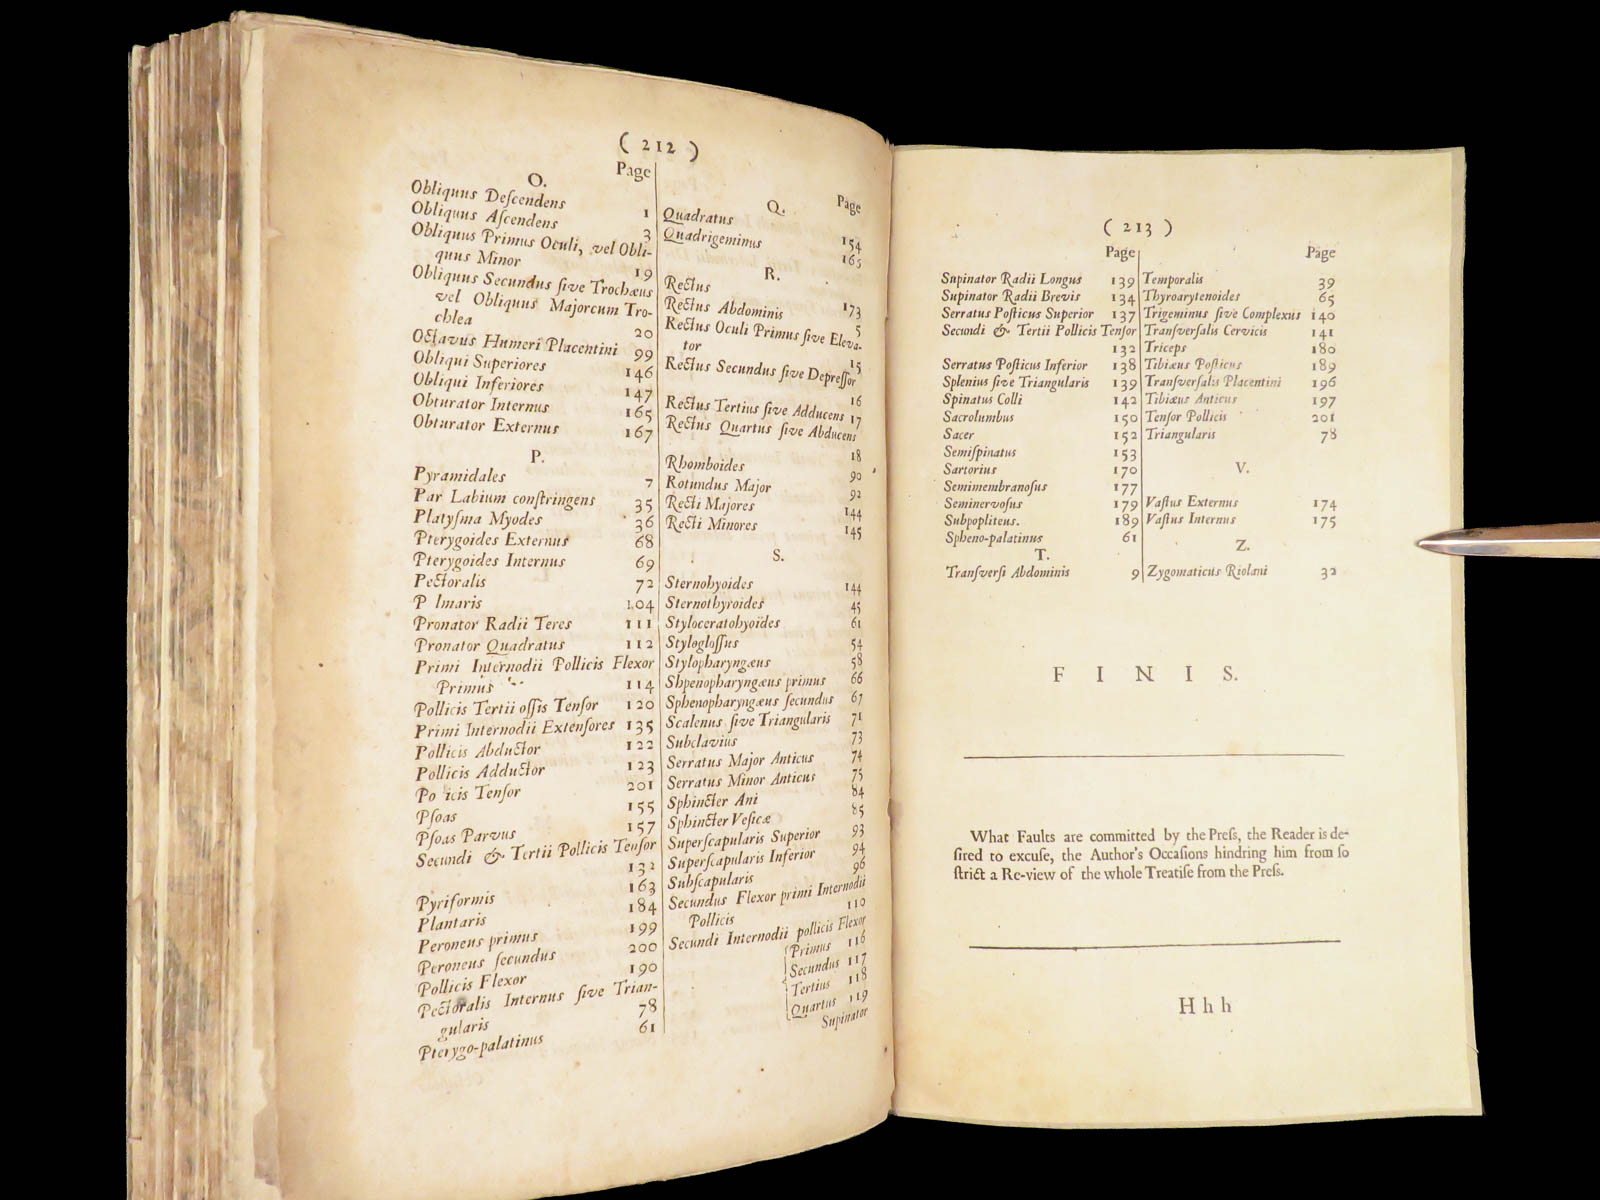 ( 212 )
Page
O.
Obliquus Deſcendens 1
Obliquus Aſcendens 3
Obliquus Primus Oculi, vel Obli-
quus Minor 19
Obliquus Secundus ſive Trochæus
vel Obliquus Majorcum Tro-
chlea 20
Octavus Humeri Placentini 99
Obliqui Superiores 146
Obliqui Inferiores 147
Obturator Internus 165
Obturator Externus 167
P.
Pyramidales 7
Par Labium conſtringens 35
Platyſma Myodes 36
Pterygoides Externus 68
Pterygoides Internus 69
Pectoralis 72
P lmaris 104
Pronator Radii Teres 111
Pronator Quadratus 112
Primi Internodii Pollicis Flexor
Primus 114
Pollicis Tertii oſſis Tenſor 120
Primi Internodii Extenſores 135
Pollicis Abductor 122
Pollicis Adductor 123
Po icis Tenſor 201
Pſoas 155
Pſoas Parvus 157
Secundi & Tertii Pollicis Tenſor
132
Pyriformis 163
Plantaris 184
Peroneus primus 199
Peroneus ſecundus 200
Pollicis Flexor 190
Pectoralis Internus ſive Trian-
gularis 78
Pterygo-palatinus 61
Page
Q.
Quadratus 154
Quadrigeminus 165
R.
Rectus 173
Rectus Abdominis 5
Rectus Oculi Primus ſive Eleva-
tor 15
Rectus Secundus ſive Depreſſor
16
Rectus Tertius ſive Adducens 17
Rectus Quartus ſive Abducens
18
Rhomboides 90
Rotundus Major 92
Recti Majores 144
Recti Minores 145
S.
Sternohyoides 144
Sternothyroides 45
Styloceratohyoides 61
Stylogloſſus 54
Stylopharyngæus 58
Shpenopharyngæus primus 66
Sphenopharyngæus ſecundus 67
Scalenus ſive Triangularis 71
Subclavius 73
Serratus Major Anticus 74
Serratus Minor Anticus 75
Sphincter Ani 84
Sphincter Veſicæ 85
Superſcapularis Superior 93
Superſcapularis Inferior 94
Subſcapularis 96
Secundus Flexor primi Internodii
Pollicis 110
Secundi Internodii pollicis Flexor
Primus 116
Secundus 117
Tertius 118
Quartus 119
Supinator
( 213 )
Page
Supinator Radii Longus 139
Supinator Radii Brevis 134
Serratus Poſticus Superior 137
Secundi & Tertii Pollicis Tenſor
132
Serratus Poſticus Inferior 138
Splenius ſive Triangularis 139
Spinatus Colli 142
Sacrolumbus 150
Sacer 152
Semiſpinatus 153
Sartorius 170
Semimembranoſus 177
Seminervoſus 179
Subpopliteus. 189
Spheno-palatinus 61
T.
Tranſverſi Abdominis 9
Page
Temporalis 39
Thyroarytenoides 65
Trigeminus ſive Complexus 140
Tranſverſalis Cervicis 141
Triceps 180
Tibiæus Poſticus 189
Tranſverſalis Placentini 196
Tibiæus Anticus 197
Tenſor Pollicis 201
Triangularis 78
V.
Vaſtus Externus 174
Vaſtus Internus 175
Z.
Zygomaticus Riolani 32
FINIS.
What Faults are committed by the Preſs, the Reader is de-
ſired to excuſe, the Author's Occaſions hindring him from ſo
ſtrict a Re-view of the whole Treatiſe from the Preſs.
Hhh